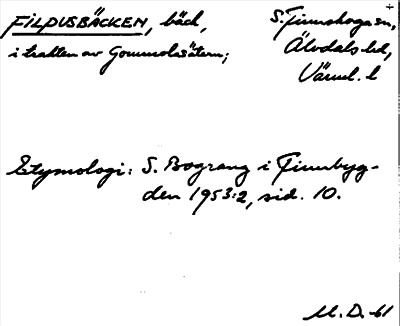 FILPUSBÄCKEN, bäck,
i trakten av Gommolisätern;
S. Finnskoga sn,
Älvdals hd,
Värml. l
Etymologi: S. Bograng i Finnbyg-
den 1953:2, sid. 10.
M. D. -61